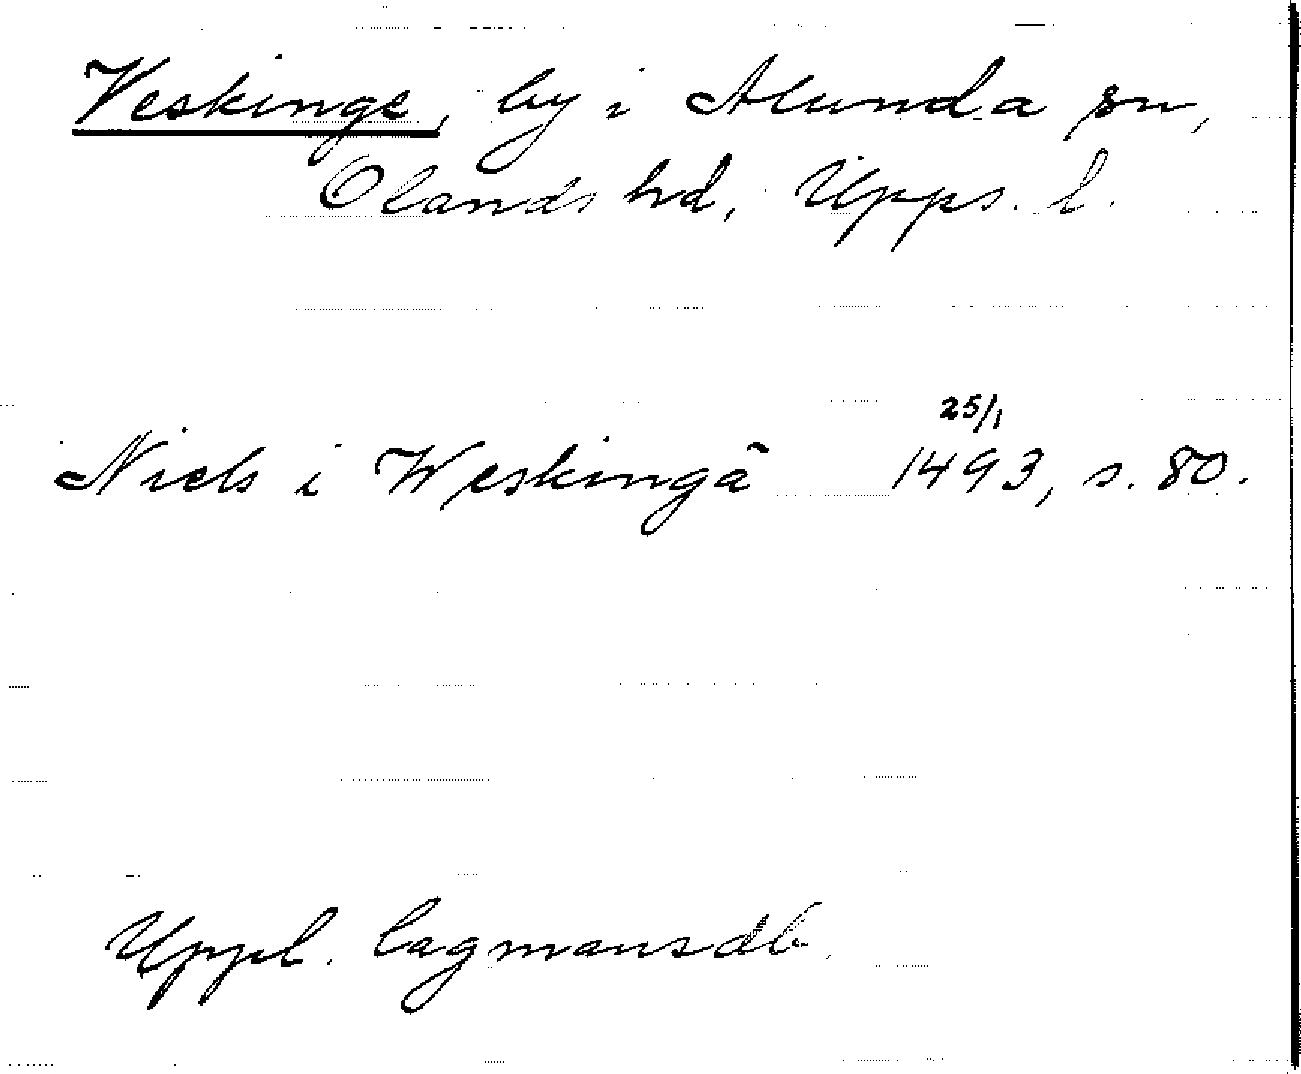 Veskinge, by i Alunda sn,
Olands hd, Upps. l.
25/1
Niels i Weskingä 1493, s. 80.
Uppl. lagmansdb.